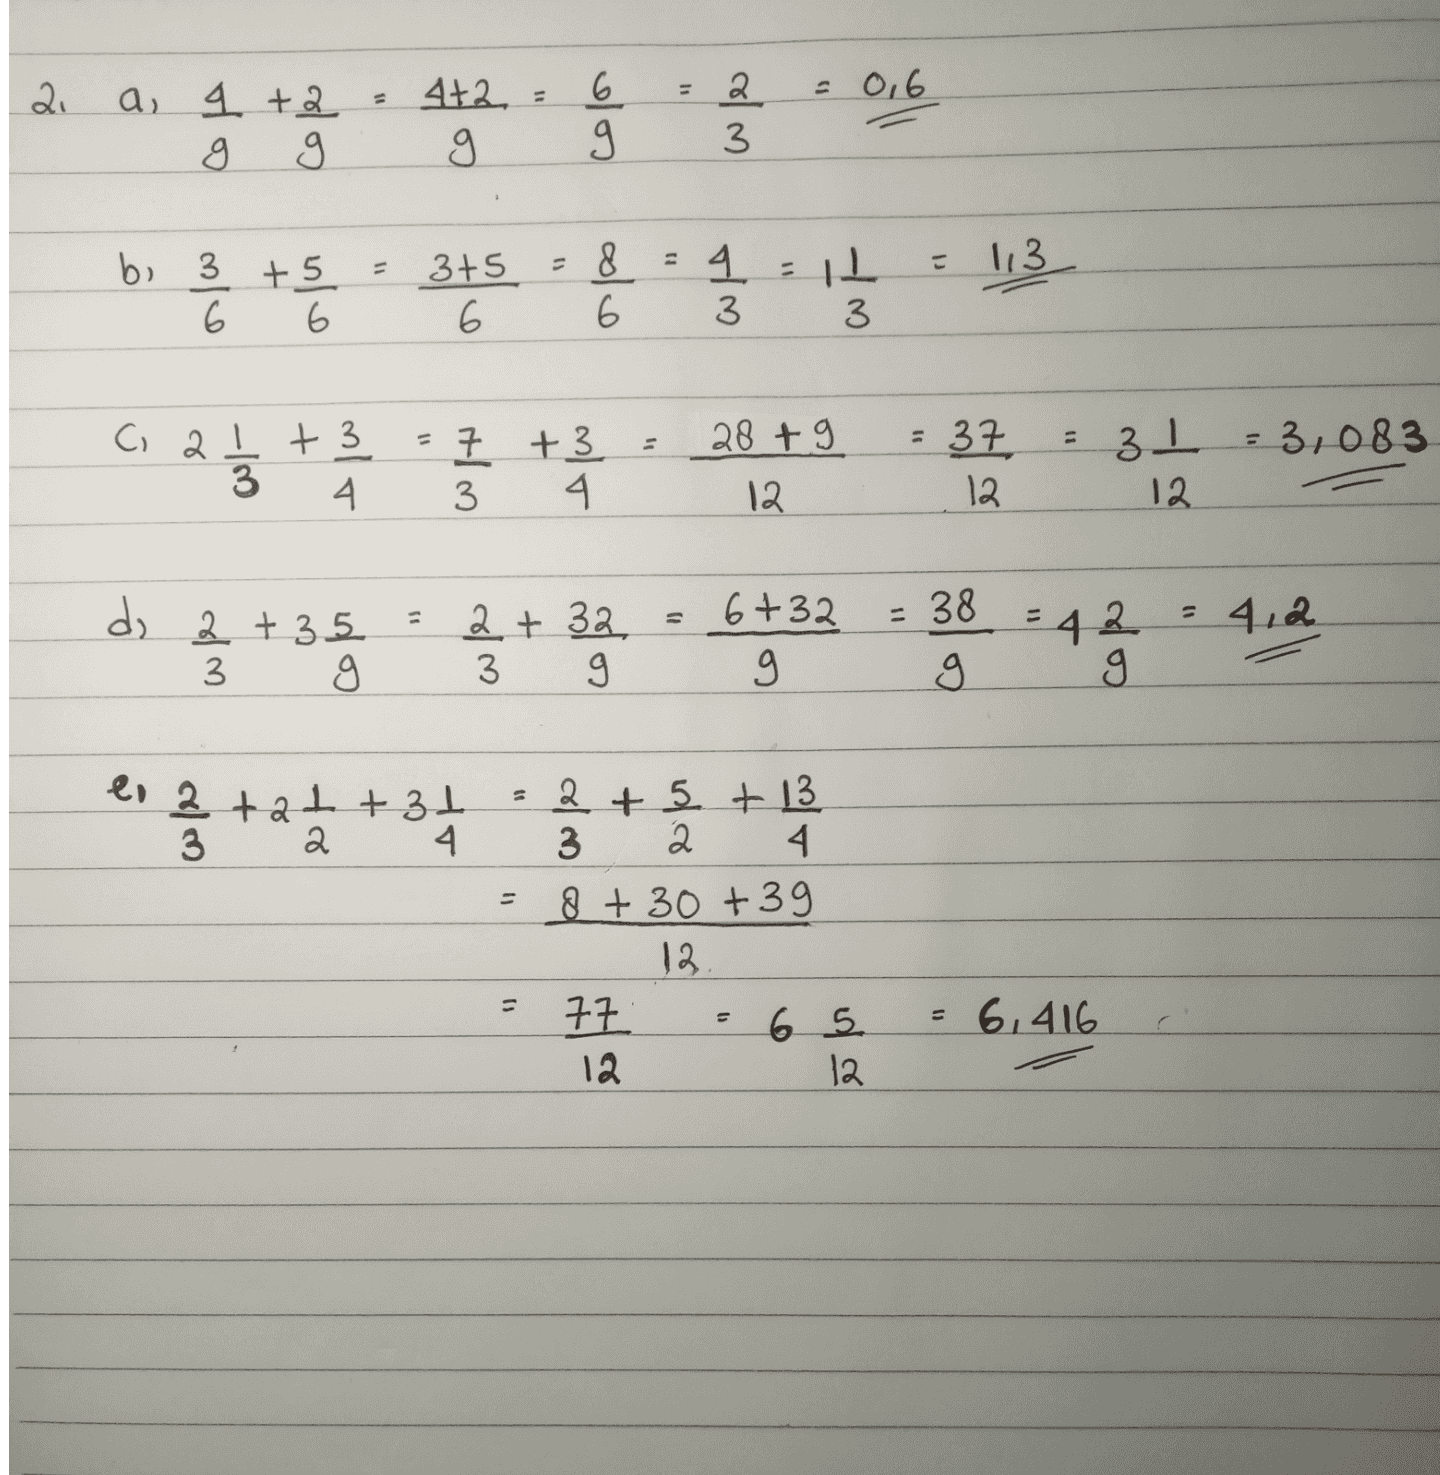 2. a, 4/9 + 2/9 = 4+2/9 = 6/9 = 2/3 = 0,6
b, 3/6 + 5/6 = 3+5/6 = 8/6 = 4/3 = 1 1/3 = 1,3
c, 2 1/3 + 3/4 = 7/3 + 3/4 = 28+9/12 = 37/12 = 3 1/12 = 3,083
d, 2/3 + 3 5/9 = 2/3 + 32/9 = 6+32/9 = 38/9 = 4 2/9 = 4,2
e, 2/3 + 2 1/2 + 3 1/4 = 2/3 + 5/2 + 13/4
= 8+30+39/12
= 77/12 = 6 5/12 = 6,416